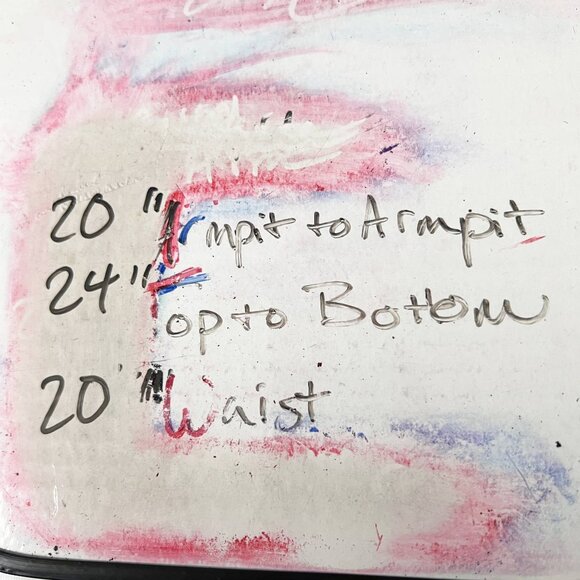 20" Armpit to Armpit
24" Top to Bottom
20" Waist